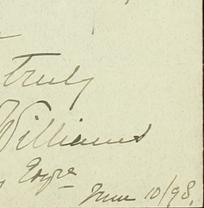 truly
Williams
Esqre
June 10/98.